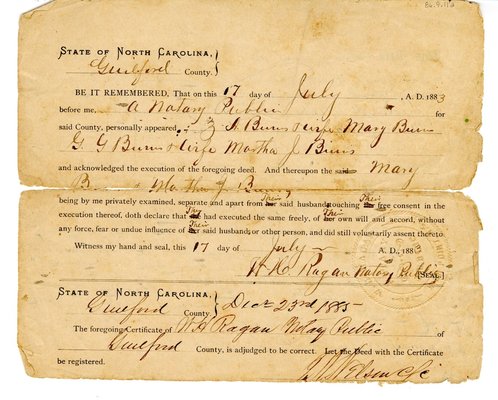 86.9.116
STATE OF NORTH CAROLINA,
Guilford County.
BE IT REMEMBERED, That on this 17 day of July, A. D. 1883
before me, A Notary Public for
said County, personally appeared Burns & wife Mary Burns
G G Burns & wife Martha J Burns
and acknowledged the execution of the foregoing deed. And thereupon the said Mary
Burns & Martha J Burns
Their Their
being by me privately examined, separate and apart from her said husband, touching her free consent in the
execution thereof, doth declare that had executed the same freely, of her own will and accord, without
Their
Their
any force, fear or undue influence of said husband or other person, and did still voluntarily assent thereto.
Witness my hand and seal, this 17 day of July A. D., 1883
W H Ragan Notary Public [SEAL.]
STATE OF NORTH CAROLINA,
Guilford County. Dec 23rd 1885
The foregoing Certificate of W H Ragan Notary Public of
Guilford County, is adjudged to be correct. Let the Deed with the Certificate
be registered.
Nelson